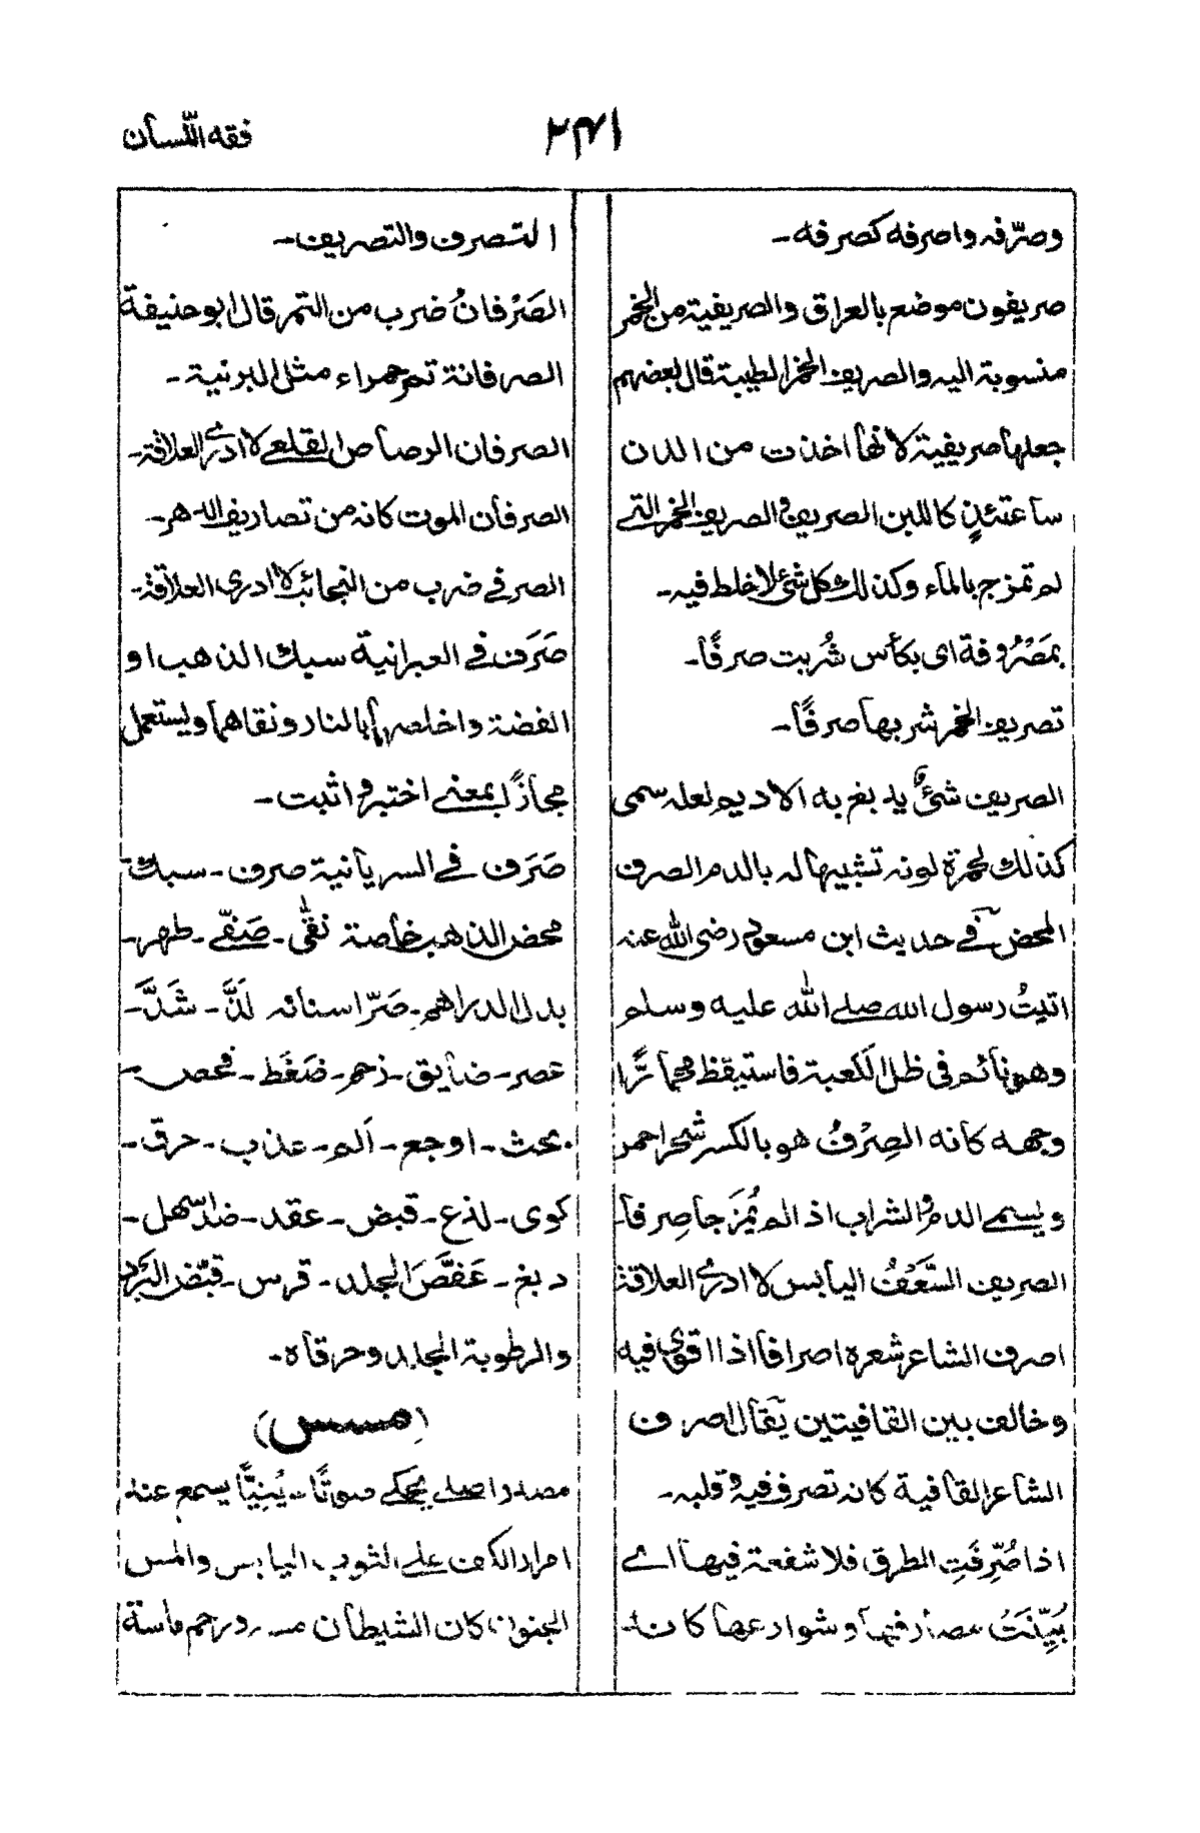 فقه اللسان
وصرّفه واصرفه كصرفه۔
صريفون موضع بالعراق والصريفية من الخمر
منسوبة اليه والصريف الخمر الطيبة قال بعضهم
جعلها صريفية لانها اخذت من الدن
ساعتئذٍ كاللبن الصريف والصريف الخمر التے
لم تمزج بالماء وكذلك كل شئ لاخلط فيه۔
بمَصْرُوفة اى بكأس شُربت صرفًا۔
تصريف الخمر شربها صرفًا۔
الصريف شئٌ يدبغ به الاديم لعله سمى
كذلك لحمرة لونه تشبيها له بالدم الصرف
المحض فے حديث ابن مسعود رضى الله عنه
اتيتُ رسول الله صلے الله عليه وسلم
وهو نائم فى ظل الكعبة فاستيقظ محمارًّا
وجهه كانه الصِرْفُ هو بالكسر شجر احمر
ويسمے الدم والشراب اذا لم يُمزَجا صِرفا۔
الصريف السَّعَفُ اليابس لا ادرے العلاقة
اصرف الشاعر شعره اصرافا اذا اقوى فيه
وخالف بين القافيتين يقال اصرف
الشاعر القافية كانه تصرف فيه وقلبه۔
اذا صُرِّفَتِ الطرق فلا شفعة فيها اے
بُيِّنَتْ مصارفها وشوارعها كانه
التصرف والتصريف۔
الصَرْفانُ ضرب من التمر قال ابو حنيفة
الصرفانة تمر حمراء مثل البرنية۔
الصرفان الرصاص القلعے لا ادرے العلاقة۔
الصرفان الموت كانه من تصاريف الدهر۔
الصرفے ضرب من النجائب لا ادرى العلاقة۔
صَرَف فے العبرانية سبك الذهب او
الفضة واخلصها بالنار ونقاهما ويستعمل
مجازًا بمعنے اختبر واثبت۔
صَرَف فے السريانية صرف۔ سبك
محض الذهب خاصة نقّى۔ صَفّے۔ طهر۔
بدل الدراهم۔ صَرّ اسنانه لَذَّ۔ شَدَّ۔
عصر۔ ضايق۔ زحم۔ ضَغَط۔ فحص۔
بحث۔ اوجع۔ اَلم۔ عذب۔ حرق۔
كوى۔ لذع۔ قبض۔ عقد۔ ضد سهل۔
دبغ۔ عَفَّصَ الجلد۔ قرس۔ قبّض البرد
والرطوبة الجلد وحرقاه۔
(مسس)
مصدر اصلے يحكے صوتًا۔ يُنِيًّا يسمع عند
امرار الكف علے الثوب اليابس والمس
الجنون كان الشيطان مسه ورحم ماسة